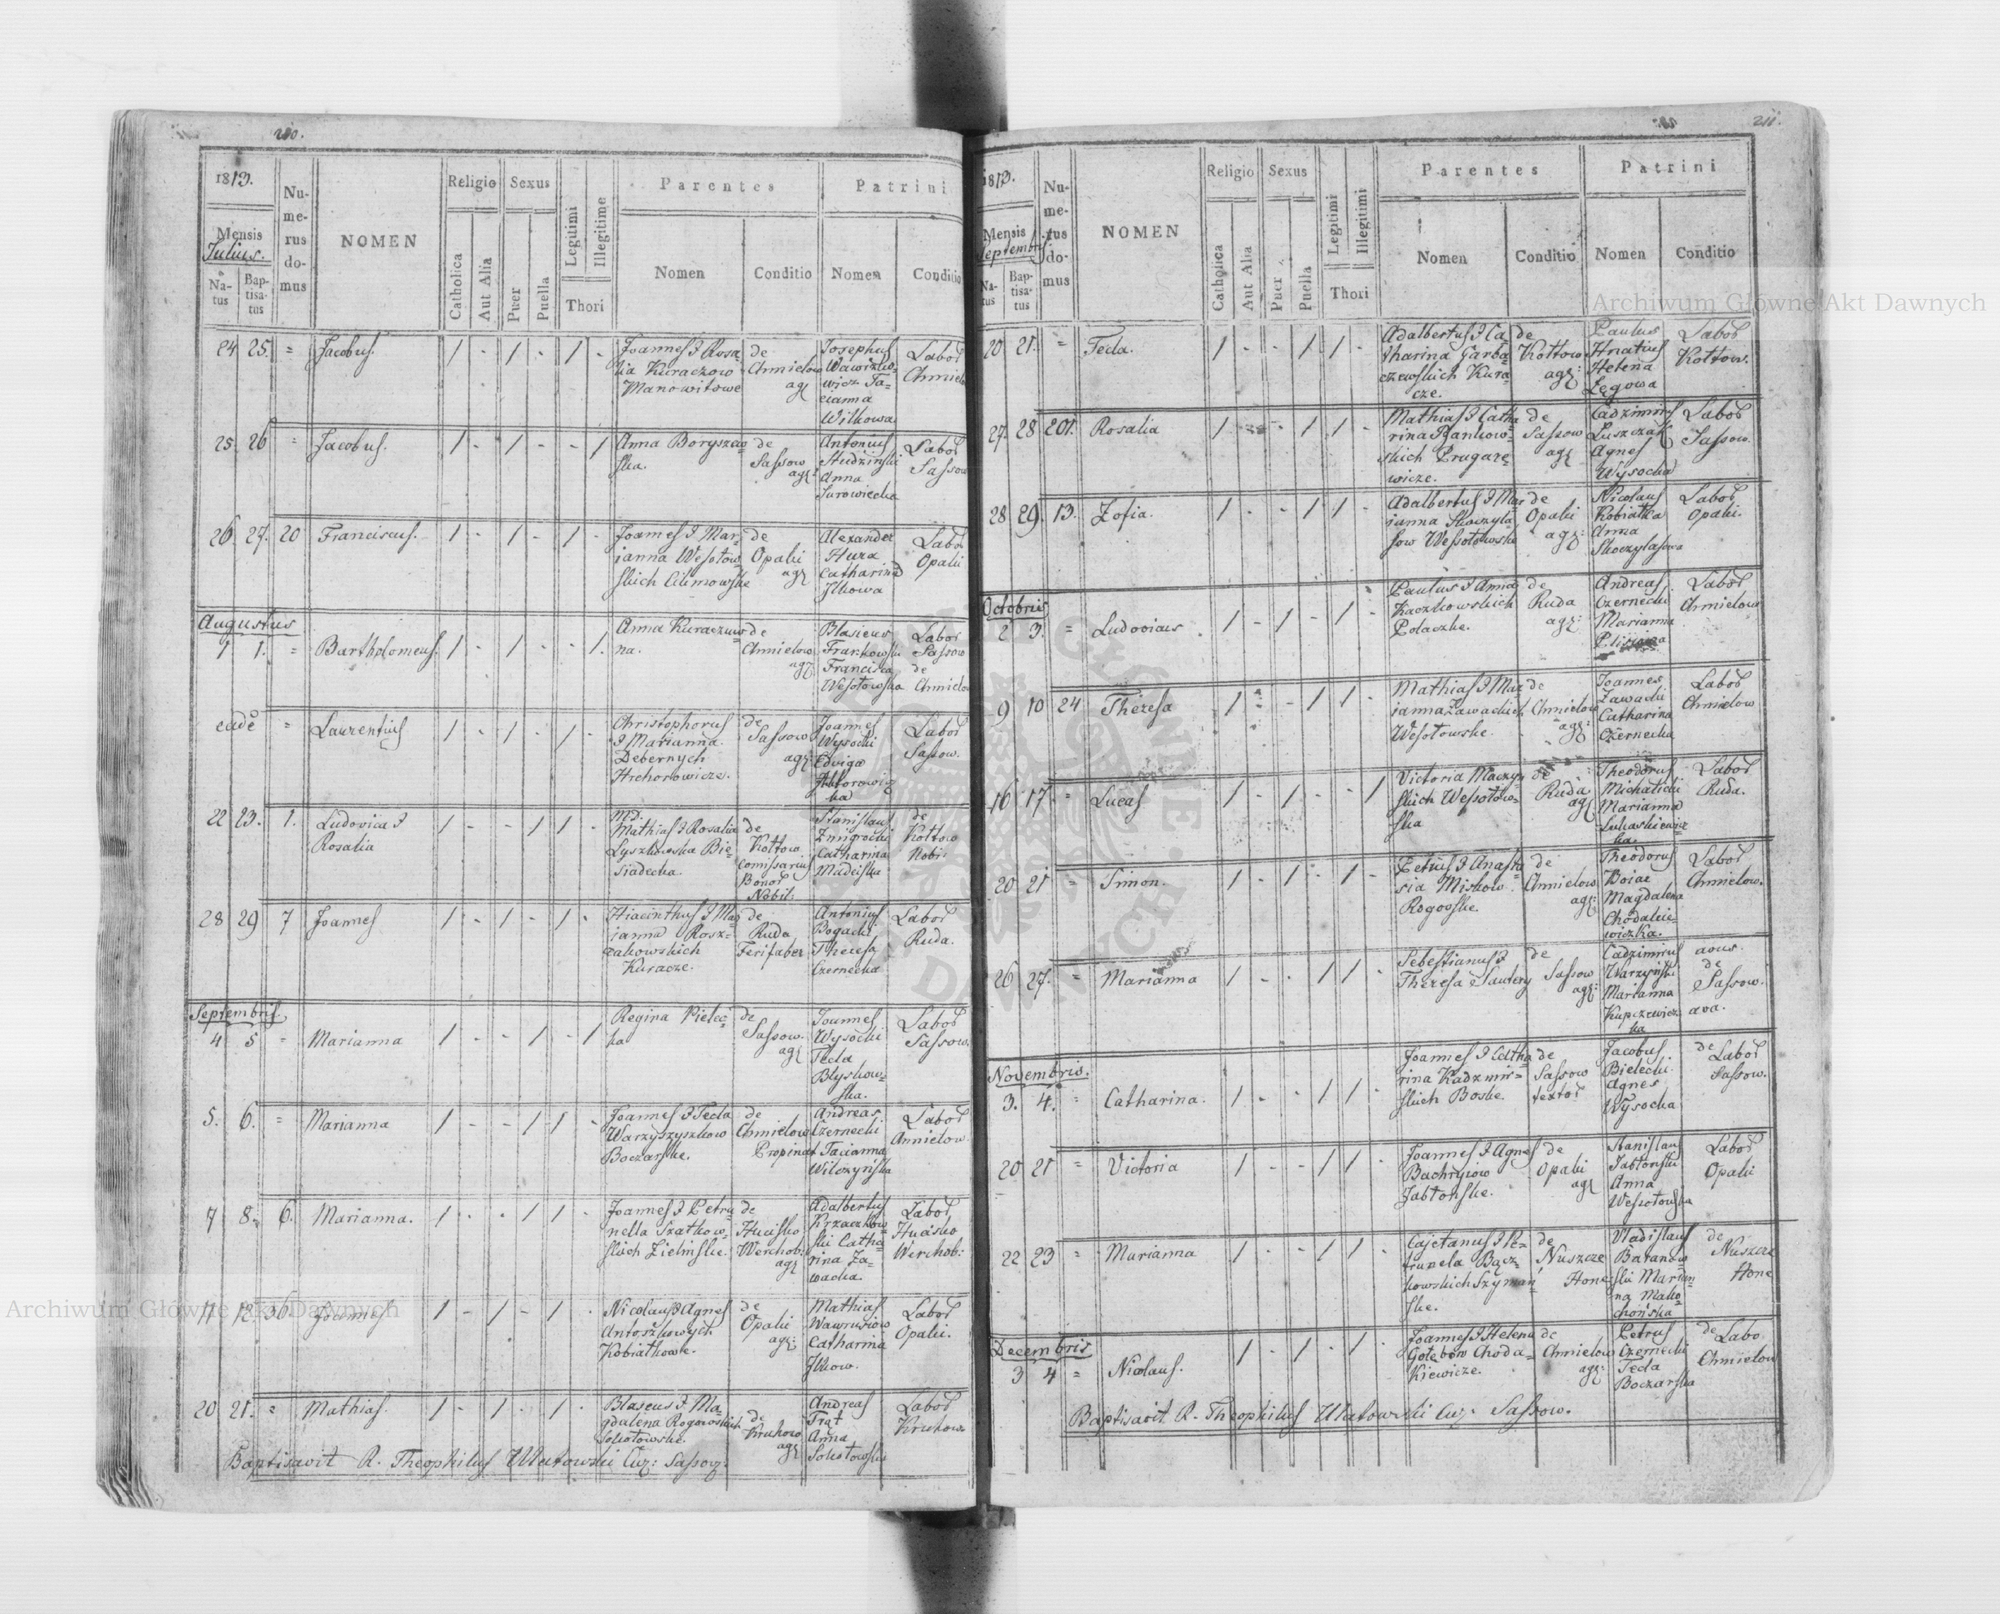 210.
1813.
Mensis
Julius.
Na-
tus
Bap-
tisa-
tus
Nu-
me-
rus
do-
mus
NOMEN
Religio
Catholica
Aut Alia
Sexus
Puer
Puella
Legitimi
Illegitime
Thori
Parentes
Nomen
Conditio
Patrini
Nomen
Conditio
24 25. = Jacobus. 1 - 1 - 1 -
Joannes & Rosa
lia Kuraczow
Manowitowe
de
Chmielow
ag
Josephus
Wawizko
wicz Ta-
cianna
Witkowa
Labor
Chmielo
25 26 = Jacobus. 1 - 1 - - 1
Anna Boryszew
ska.
de
Sassow
ag:
Antonius
Studzinski
Anna
Jurowiecka
Labor
Sassow
26. 27. 20 Franciscus. 1 - 1 - 1 -
Joannes & Mar-
ianna Wesołow
skich Cilmowske
de
Opaki
ag
Alexander
Huza
Catharina
Ilkowa
Labor
Opaki
Augustus
1 1. = Bartholomeus. 1 - 1 - - 1.
Anna Kuraczow
na.
de
Chmielow
ag
Blasius
Frankowski
Francisca
Wesołowska
Labor
Sassow
de
Chmielow
eadē = Laurentius 1 - 1 - 1 -
Christophorus
& Marianna
Debernych
Hrehorowicze.
de
Sassow
ag:
Joannes
Wysocki
Edviga
ka
Labor
Sassow.
22 23. 1. Ludovica &
Rosalia
1 - - 1 1 -
Md.
Mathias & Rosalia
Lyszkowska Bie-
siadecka.
de
Kołtow
Comissarius
Bonor
Nobil:
Stanislaus
Zmigrocki
Catharina
Madeiska
de
Kołtow
Nobi:
28 29 7 Joannes 1 - 1 - 1 -
Hiacinthus & Mar
ianna Rosz-
cakowskich
Kuracze.
de
Ruda
Ferifaber
Antonius
Bogacki
Theresa
Czernecka
Labor
Ruda.
Septembris
4 5 = Marianna 1 - - 1 - 1
Regina Pielec-
ka
de
Sassow.
ag
Joannes
Wysocki
Tecla
Blyskow-
ska.
Labor
Sassow.
5. 6. = Marianna 1 - - 1 1 -
Joannes & Tecla
Warzyszyszkow
Boczarske.
de
Chmielow
Propinat
Andreas
Czernecki
Tacianna
Wilczynska
Labor
Chmielow.
7 8. 6. Marianna. 1 - - 1 1 -
Joannes & Petro
nella Szatkow-
skich Zielinske.
de
Hucisko
Werchob:
ag
Adalbertus
Krzaczkow
ski Catha-
rina Za-
wacka.
Labor
Hucisko
Werchob:
11 12. 36. Joannes 1 - 1 - 1 -
Nicolaus & Agnes
Antoszkowych
Kobiatkowe.
de
Opaki
ag:
Mathias
Wawrusiow
Catharina
Ilkow.
Labor
Opaki.
20 21. = Mathias. 1 - 1 - 1 -
Blaseus & Ma-
gdalena Rogowskich
Sokołowske.
de
Kruhow
ag
Andreas
Trat
Anna
Sokołowska
Labor
Kruhow
Baptisavit R. Theophilus Ułatowski Cur: Sassov:
211.
1813.
Mensis
Septembris
Na-
tus
Bap-
tisa-
tus
Nu-
me-
rus
do-
mus
NOMEN
Religio
Catholica
Aut Alia
Sexus
Puer
Puella
Legitimi
Illegitimi
Thori
Parentes
Nomen
Conditio
Patrini
Nomen
Conditio
20 21. = Tecla. 1 - - 1 1 -
Adalbertus & Ca
tharina Garba-
czewskich Kura-
cze.
de
Kołtow
ag:
Paulus
Hnatius
Helena
Łęgowa
Labor
Kołtow.
27. 28 201. Rosalia 1 - - 1 1 -
Mathias & Catha
rina Rankow-
skich Pragare-
wicze.
de
Sassow
ag
Cadzimirus
Luszczak
Agnes
Wysocka
Labor
Sassow.
28 29. 13. Zofia. 1 - - 1 1 -
Adalbertus & Mar
ianna Skoczyla-
sow Wessołowske
de
Opaki
ag:
Nicolaus
Kobiatka
Anna
Skoczylasowa
Labor
Opaki.
Octobris
2 3. = Ludovicus 1 - 1 - 1 -
Paulus & Anna
Kaczkowskich
Polaczke.
de
Ruda
ag:
Andreas
Czernecki
Marianna
Labor
Chmielow
9 10 24 Theresa 1 - - 1 1 -
Mathias & Mar
ianna Zawackich
Wesołowske.
de
Chmielow
ag:
Joannes
Zawacki
Catharina
Czernecka
Labor
Chmielow
16 17. = Lucas 1 - 1 - - 1
Victoria Maczyn
skich Wessołow-
ska
de
Ruda
ag
Theodorus
Michalicki
Marianna
Lukaskiewicz
ka.
Labor
Ruda.
20 21 = Simon. 1 - 1 - 1 -
Petrus & Anasta
sia Miskow
Rogowske.
de
Chmielow
ag:
Theodorus
Boiae
Magdalena
Chodakie-
wiczka.
Labor
Chmielow.
26 27. = Marianna 1 - - 1 1 -
Sebestianus &
Theresa Sautery
de
Sassow
ag:
Cadzimirus
Warzynski
Marianna
Kupczewicz
ka
avus.
de
Sassow.
ava.
Novembris.
3. 4. = Catharina. 1 - - 1 1 -
Joannes & Catha
rina Kadzmir-
skich Boske
de
Sassow
textor
Jacobus
Bielecki
Agnes
Wysocka
de Labor
Sassow.
20 21 = Victoria 1 - - 1 1 -
Joannes & Agnes
Bachrysiow
Jabłonske.
de
Opaki
ag
Stanislaus
Jabłonski
Anna
Wesołowska
Labor
Opaki
22 23 = Marianna 1 - - 1 1 -
Cajetanus & Pe-
trunela Bącz-
kowskich Szyman
ske.
de
Nuszcze
Hone
Vladislaus
Baranow
ski Marian
na Mako-
chońska
de
Nuszcze
Hone
Decembris
3 4 = Nicolaus. 1 - 1 - 1 -
Joannes & Helena
Gołębow Choda-
kiewicze.
de
Chmielow
ag:
Petrus
Czernecki
Tecla
Boczarska
de Labo
Chmielow
Baptisavit R. Theophilus Ułatowski Cur: Sassow.
Archiwum Główne Akt Dawnych
Archiwum Główne Akt Dawnych